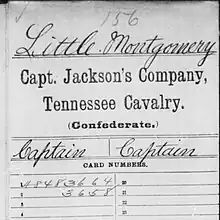 156
Little, Montgomery
Capt. Jackson's Company,
Tennessee Cavalry.
(Confederate.)
Captain Captain
CARD NUMBERS.
1 48483664 20
2 3658 21
3 22
4 23